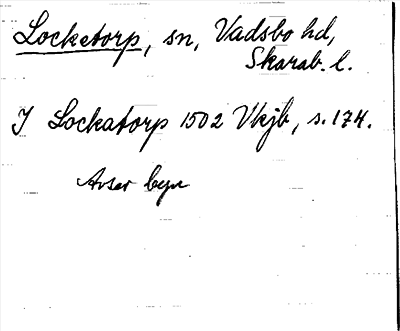 Locketorp, sn, Vadsbo hd,
Skarab. l.
J Lockatorp 1502 Vkjb, s. 174.
Avser byn